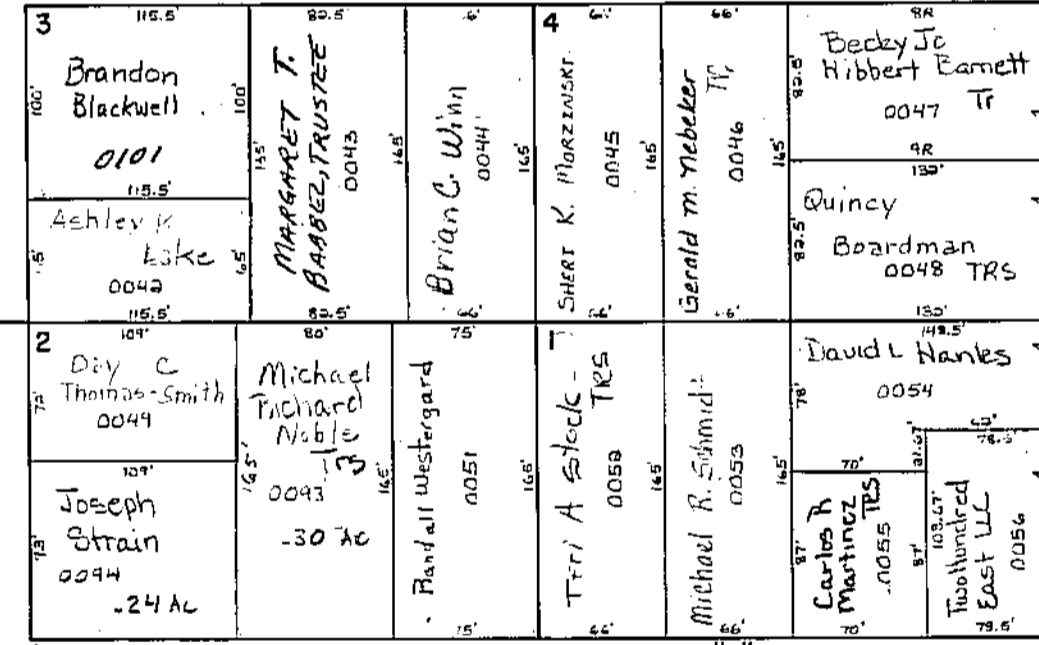 3
115.5'
Brandon
Blackwell
100'
100'
0101
115.5'
Ashley K
Lake
0042
115.5'
82.5'
MARGARET T.
BABBEL, TRUSTEE
0043
165'
165'
82.5'
Brian C. Winn
0044
165'
66'
4
SHERI K. MORZINSKI
0045
165'
66'
Gerald M. Nebeker
Tr
0046
165'
8R
Becky Jo
Hibbert Earnett
Tr
0047
82.5'
9R
132'
Quincy
Boardman
0048 TRS
82.5'
132'
2
109'
Thomas-Smith
0049
72'
109'
Joseph
Strain
0094
93'
.24 Ac
80'
Michael
Richard
Noble
0093
165'
165'
.30 Ac
75'
Randall Westergard
0051
165'
75'
1
Terri A Stock -
TRS
0052
165'
66'
Michael R. Schmidt
0053
165'
66'
148.5'
David L Hanks
0054
78'
70'
Carlos R
Martinez TRS
0055
87'
87'
70'
78.5'
103.67'
Two Hundred
East LLC
0056
79.5'